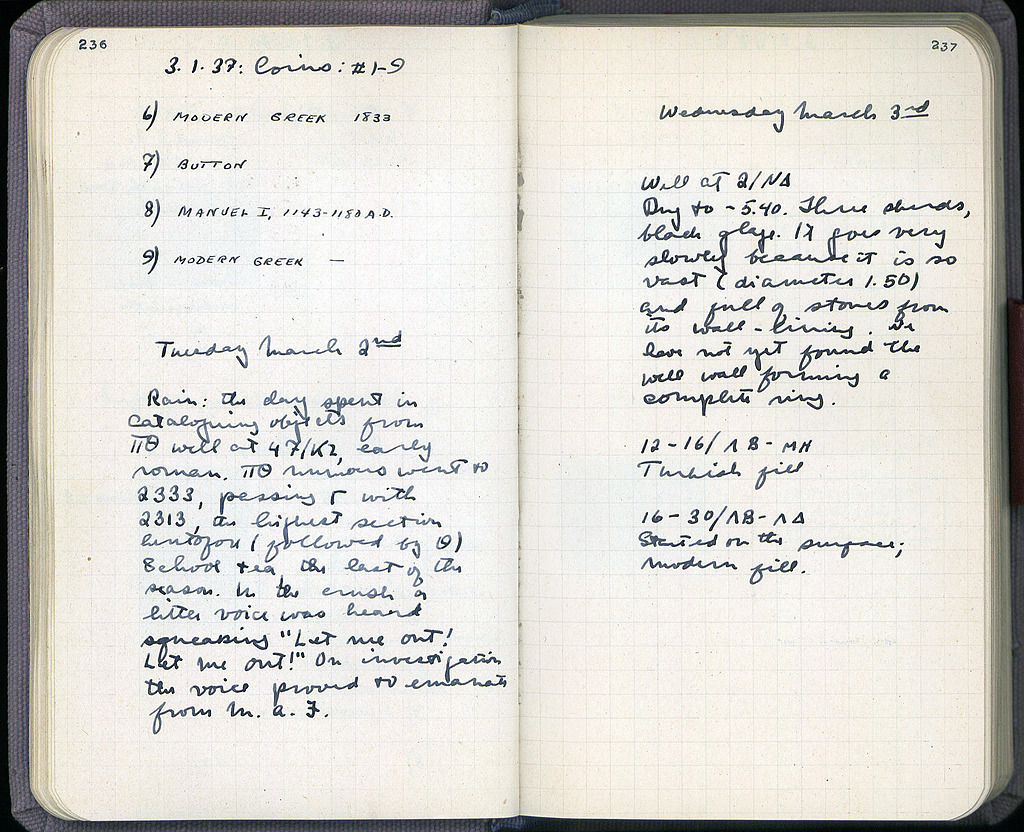 236
3.1.37: Coins: #1-9
6) MODERN GREEK 1833
7) BUTTON
8) MANUEL I, 1143-1180 A.D.
9) MODERN GREEK —
Tuesday March 2nd
Rain: the day spent in
cataloguing objects from
ΠΘ well at 47/ΚΖ, early
roman. ΠΘ numbers went to
2333, passing Γ with
2313, the highest section
heretofore (followed by Θ)
School tea, the last of the
season. In the crush a
little voice was heard
squeaking "Let me out!
Let me out!" On investigation
the voice proved to emanate
from M. A. F.
237
Wednesday March 3rd
Well at 2/ΝΔ
Dug to -5.40. Three sherds,
black glaze. It goes very
slowly because it is so
vast (diameter 1.50)
and full of stones from
its wall-lining. We
have not yet found the
well wall forming a
complete ring.
12-16/ΛΒ-ΜΗ
Turkish fill
16-30/ΛΒ-ΛΔ
Started on the surface;
modern fill.